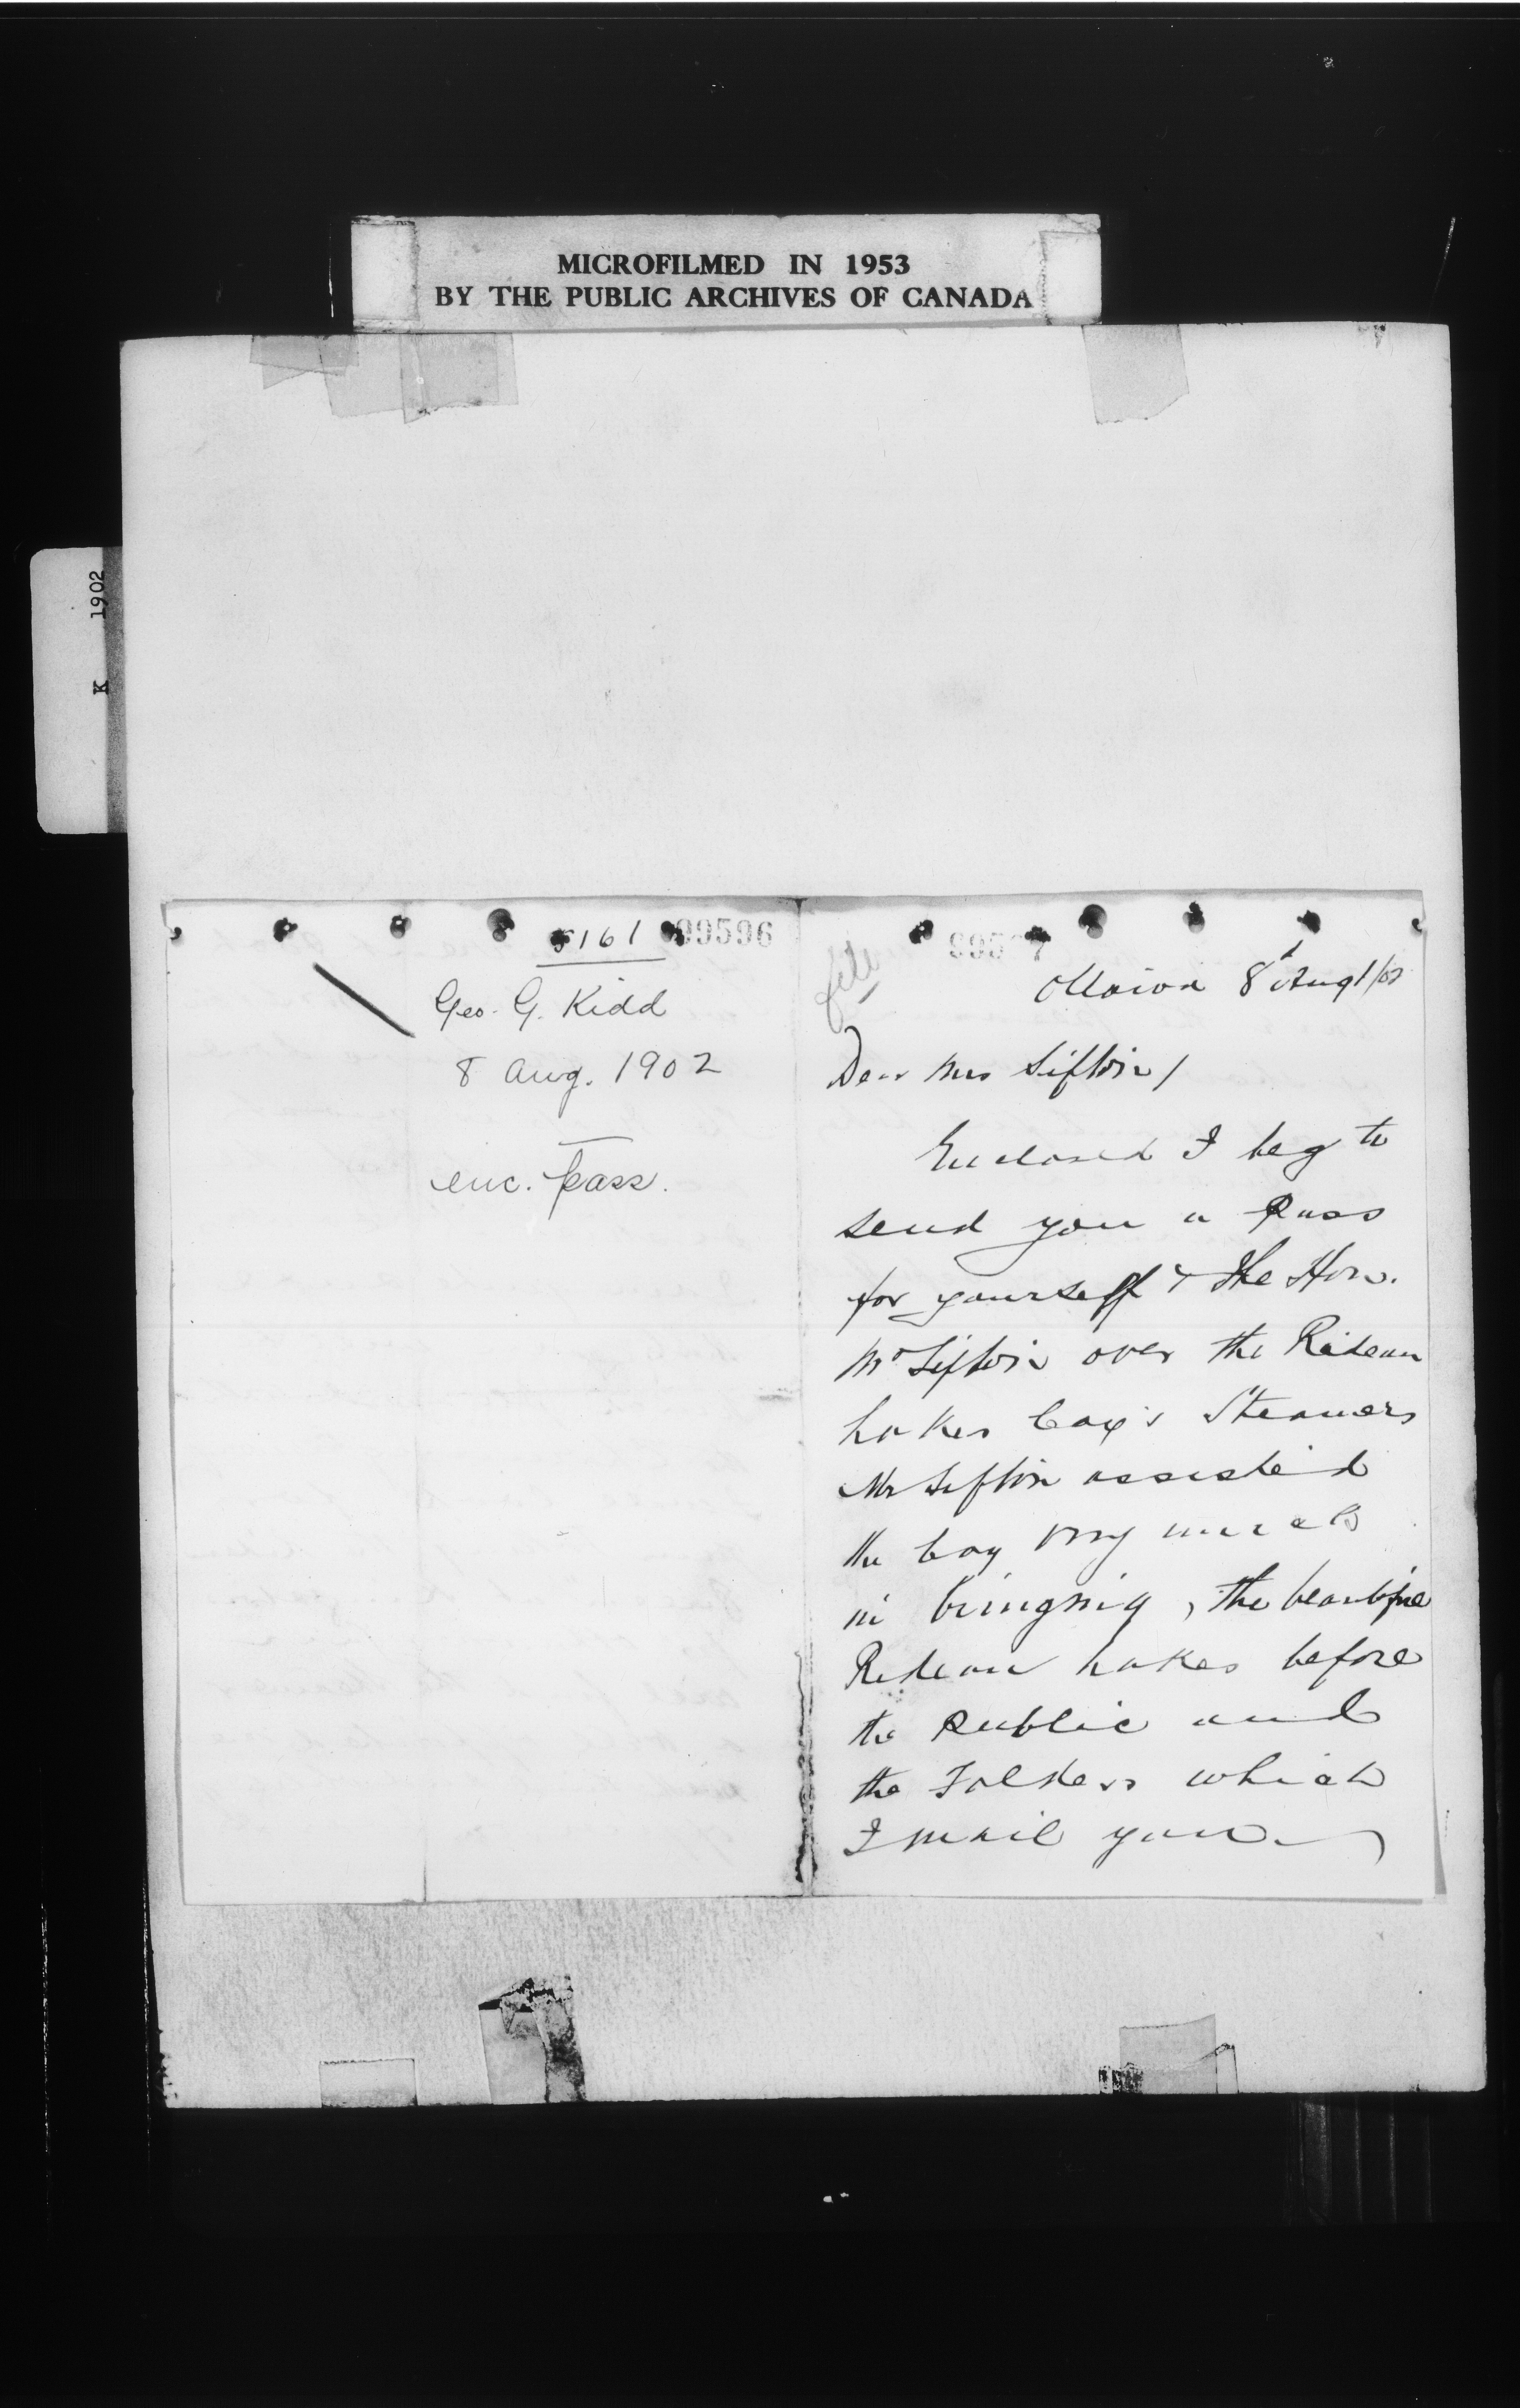 MICROFILMED IN 1953
BY THE PUBLIC ARCHIVES OF CANADA
K 1902
5161 99596
Geo. G. Kidd
8 Aug. 1902
enc. pass.
file
Ottawa 8 Augt/02
Dear Mrs Sifton/
Enclosed I beg to
send you a Pass
for yourself & the Hon.
Mr Sifton over the Rideau
Lakes Coy's Steamers
Mr Sifton assisted
the Coy very much
in bringing, the beautiful
Rideau Lakes before
the Public and
the Folders which
I mail you